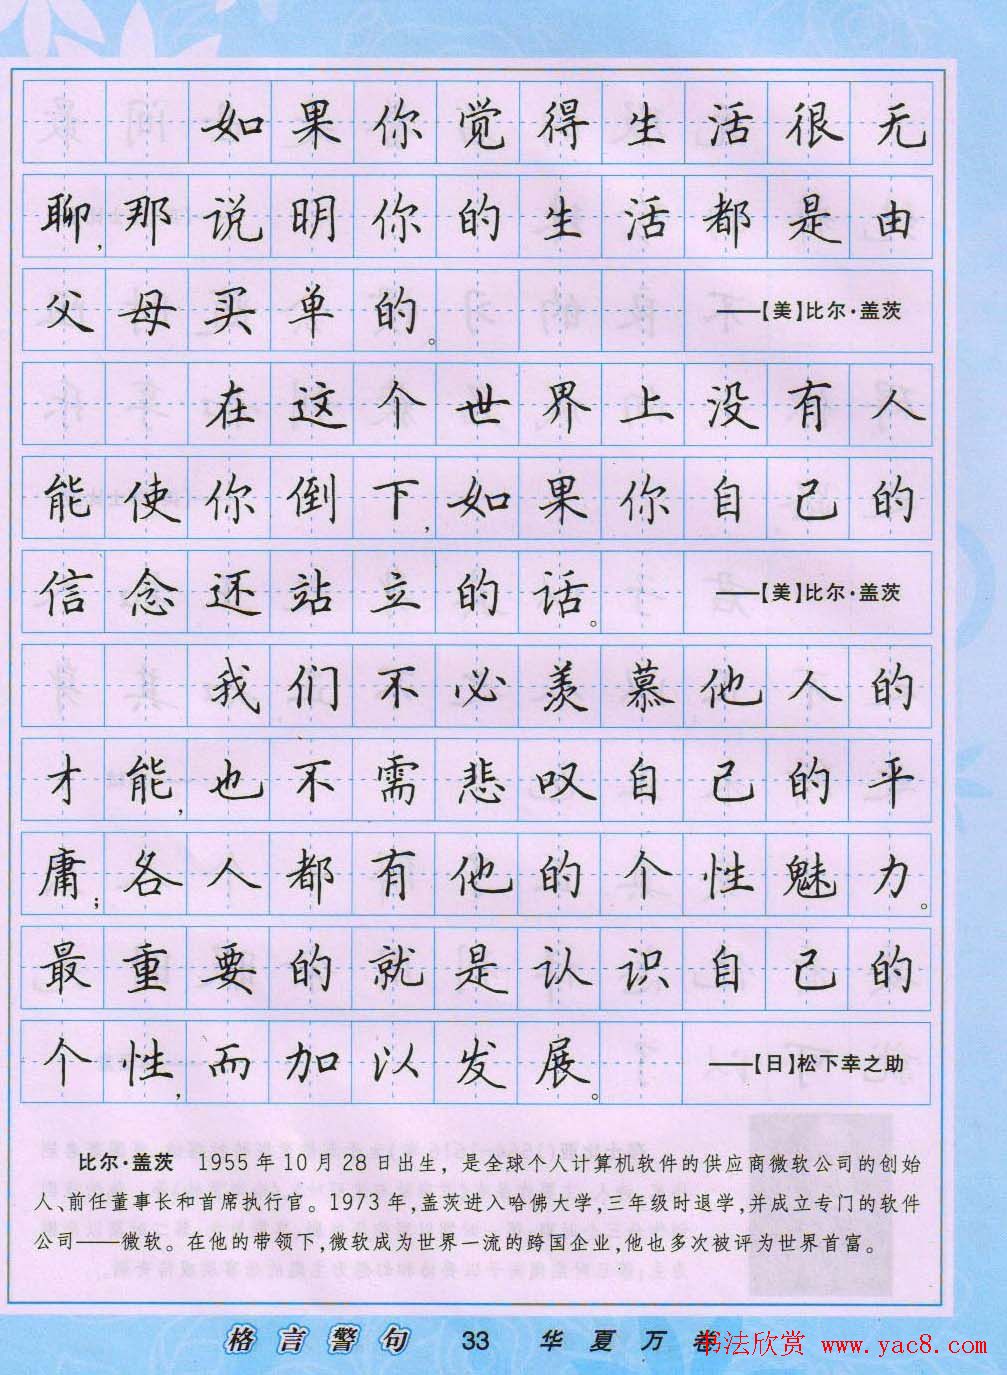 如果你觉得生活很无
聊,那说明你的生活都是由
父母买单的。 ——【美】比尔·盖茨
在这个世界上没有人
能使你倒下,如果你自己的
信念还站立的话。 ——【美】比尔·盖茨
我们不必羡慕他人的
才能,也不需悲叹自己的平
庸;各人都有他的个性魅力。
最重要的就是认识自己的
个性,而加以发展。 ——【日】松下幸之助
比尔·盖茨 1955年10月28日出生，是全球个人计算机软件的供应商微软公司的创始
人、前任董事长和首席执行官。1973年,盖茨进入哈佛大学,三年级时退学,并成立专门的软件
公司——微软。在他的带领下,微软成为世界一流的跨国企业,他也多次被评为世界首富。
格言警句 33 华夏万卷
书法欣赏 www.yac8.com